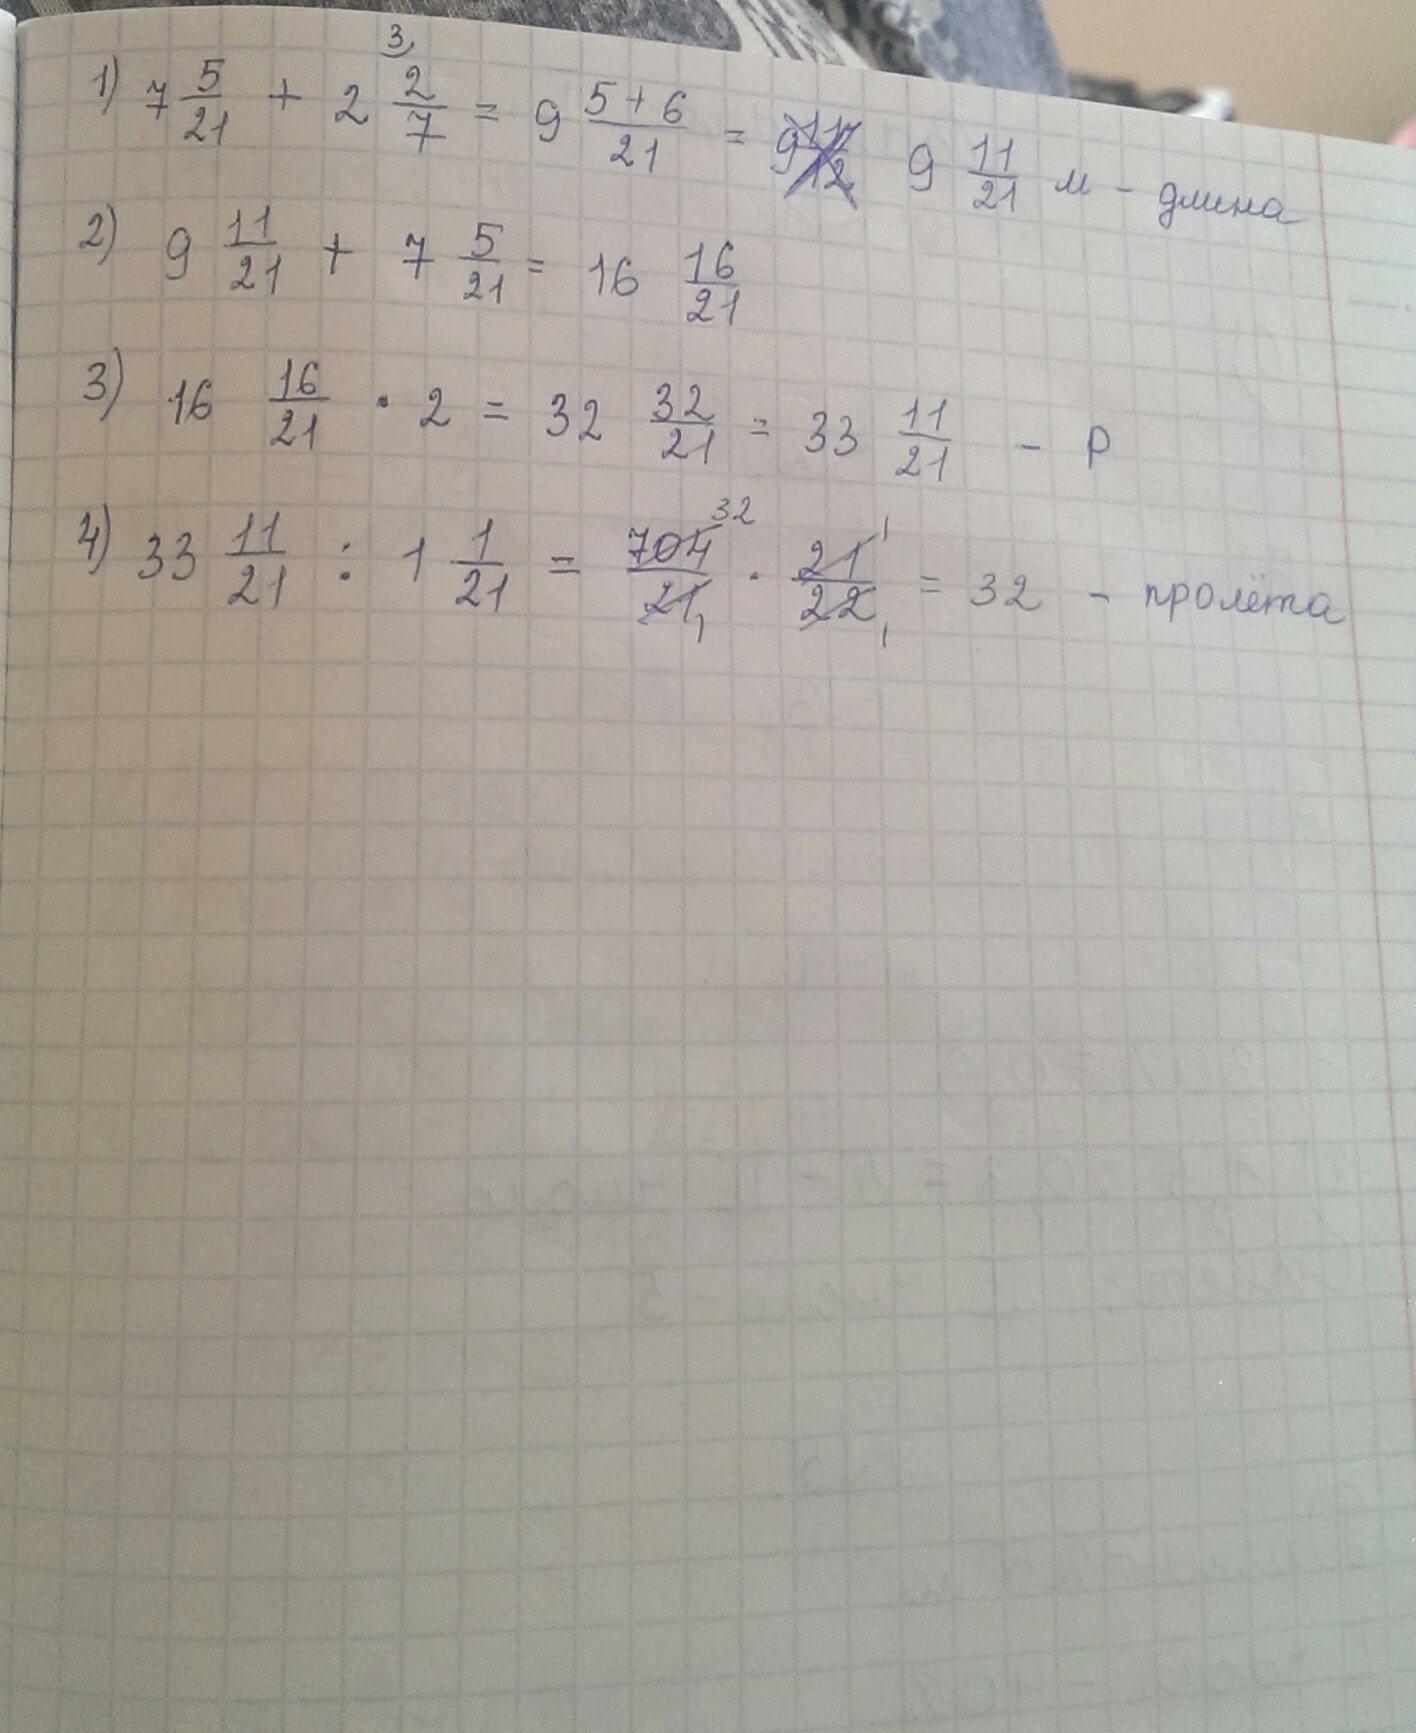 1) 7 5/21 + 2 2/7 3) = 9 5+6/21 = 9 11/21 м - длина
2) 9 11/21 + 7 5/21 = 16 16/21
3) 16 16/21 · 2 = 32 32/21 = 33 11/21 - P
4) 33 11/21 : 1 1/21 = 704 32/21 1 · 21 1/22 1 = 32 - пролёта